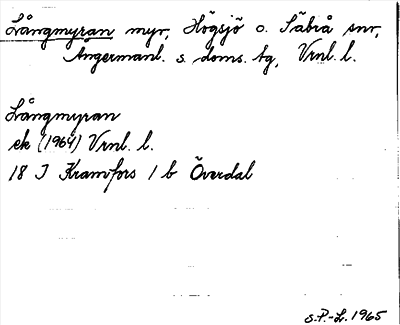 Långmyran myr, Högsjö o. Säbrå snr,
Ångermanl. s. doms. tg, Vrnl. l.
Långmyran
ek (1964) Vrnl. l.
18 I Kramfors 1 b Överdal
S.P.-L. 1965